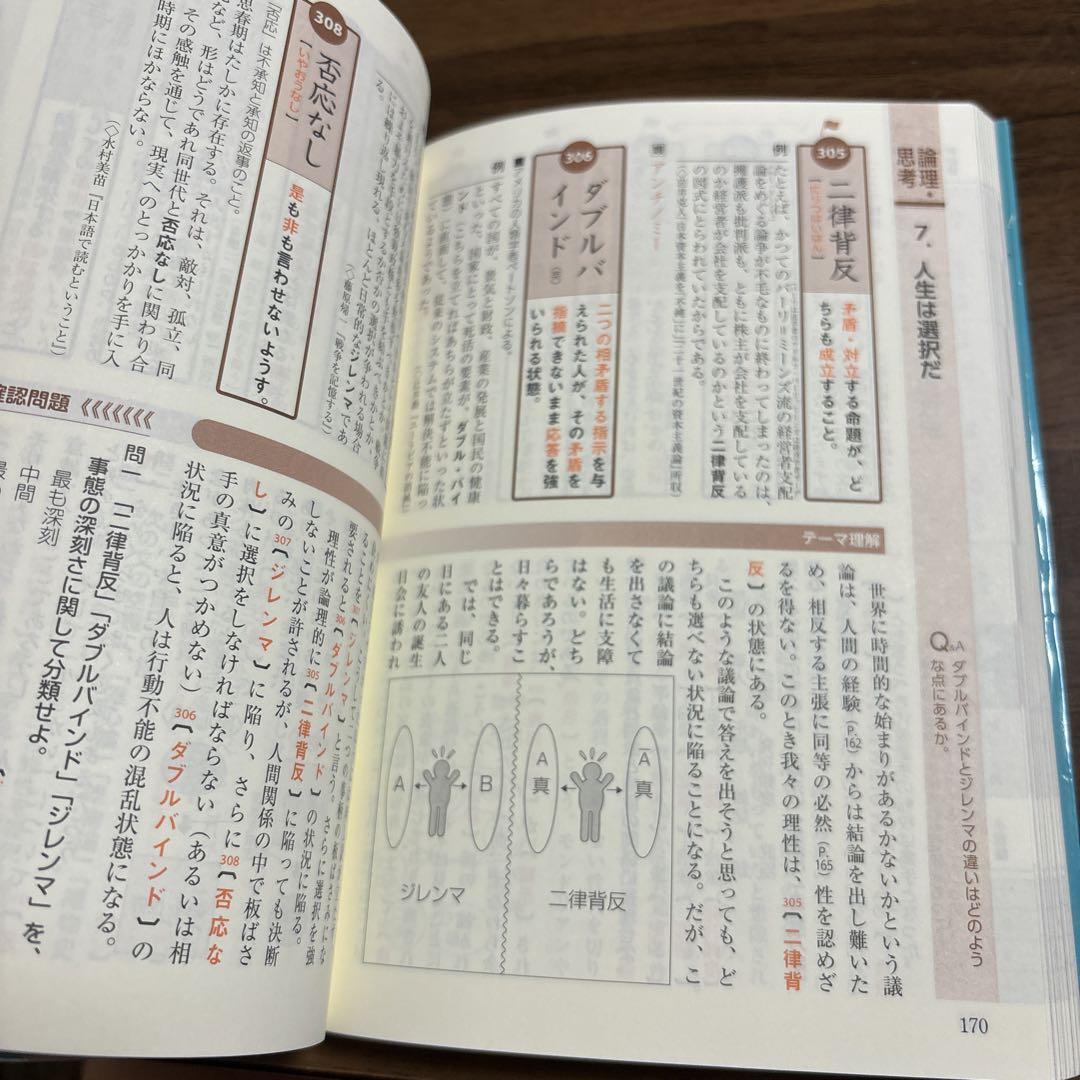 論理・
思考
7. 人生は選択だ
Q&A ダブルバインドとジレンマの違いはどのよう
な点にあるか。
305
二律背反
[にりつはいはん]
矛盾・対立する命題が、ど
ちらも成立すること。
例 たとえば、かつてのバーリ=ミーンズ流の経営者支配
論をめぐる論争が不毛なものに終わってしまったのは、
擁護派も批判派も、ともに株主が会社を支配している
のか経営者が会社を支配しているのかという二律背反
の図式にとらわれていたからである。
アンチノミー
306
ダブルバ
インド
二つの相矛盾する指示を与
えられた人が、その矛盾を
指摘できないまま応答を強
いられる状態。
アメリカの人類学者ベートソンによる。
例 すべての国が、景気と財政、産業の発展と国民の健康
といった、国家にとって死活の要素が、ダブル・バイ
ンド
テーマ理解
世界に時間的な始まりがあるかないかという議
論は、人間の経験(P.162)からは結論を出し難いた
め、相反する主張に同等の必然(P.165)性を認めざ
るを得ない。このとき我々の理性は、305〔二律背
反〕の状態にある。
このような議論で答えを出そうと思っても、ど
ちらも選べない状況に陥ることになる。だが、こ
の議論に結論
を出さなくて
も生活に支障
はない。どち
らであろうが、
日々暮らすこ
とはできる。
では、同じ
日にある二人
の友人の誕生
日会に誘われ
A
真
A
真
二律背反
A
B
ジレンマ
170
ジレンマであ
る。
308
否応なし
[いやおうなし]
是も非も言わせないようす。
「否応」は不承知と承知の返事のこと。
思春期はたしかに存在する。それは、敵対、孤立、同
など、形はどうであれ同世代と否応なしに関わり合
その感触を通じて、現実へのとっかかりを手に入
時期にほかならない。
(◇水村美苗『日本語で読むということ』)
307〔ジレンマ〕と言う。さらに選択を強
要されると306〔ダブルバインド〕の状況に陥る。
理性が論理的に305〔二律背反〕に陥っても決断
しないことが許されるが、人間関係の中で板ばさ
みの307〔ジレンマ〕に陥り、さらに308〔否応な
し〕に選択をしなければならない(あるいは相
手の真意がつかめない)306〔ダブルバインド〕の
状況に陥ると、人は行動不能の混乱状態になる。
確認問題
問一 「二律背反」「ダブルバインド」「ジレンマ」を、
事態の深刻さに関して分類せよ。
最も深刻
中間